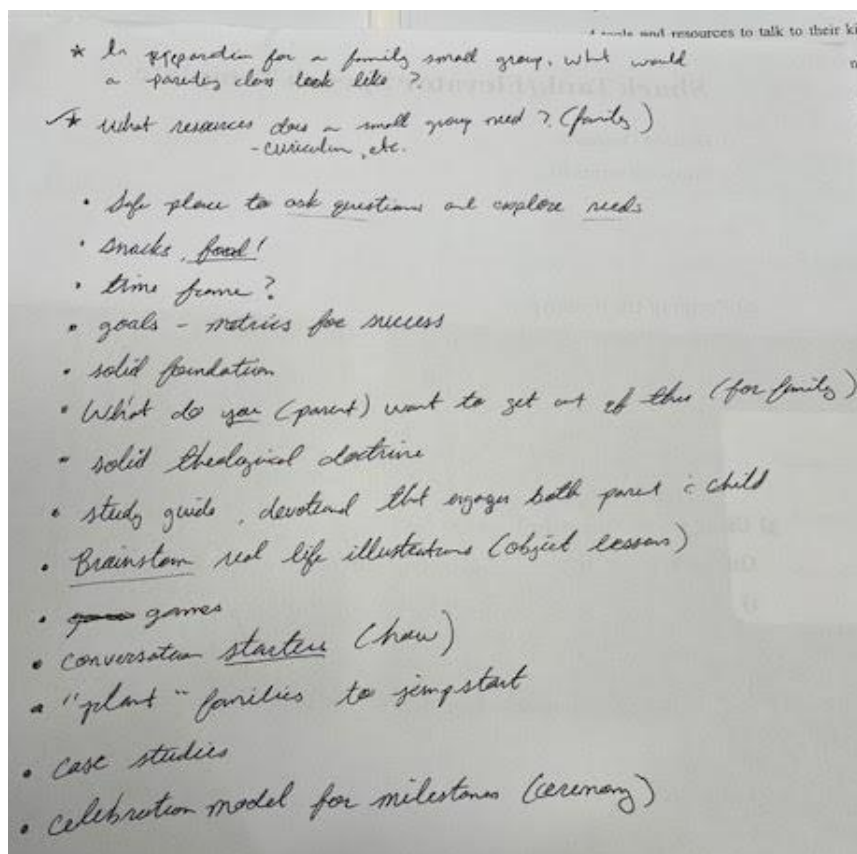 and resources to talk to their ki
* In preparation for a family small group, what would
a parenting class look like?
* What resources does a small group need? (family)
- curriculum, etc.
• Safe place to ask questions and explore needs
• snacks, food!
• time frame?
• goals - metrics for success
• solid foundation
• What do you (parent) want to get out of this (for family)
- solid theological doctrine
• study guide, devotional that engages both parent & child
• Brainstorm real life illustrations (object lessons)
• games
• conversation starters (how)
• "plant" families to jumpstart
• case studies
• celebration model for milestones (ceremony)